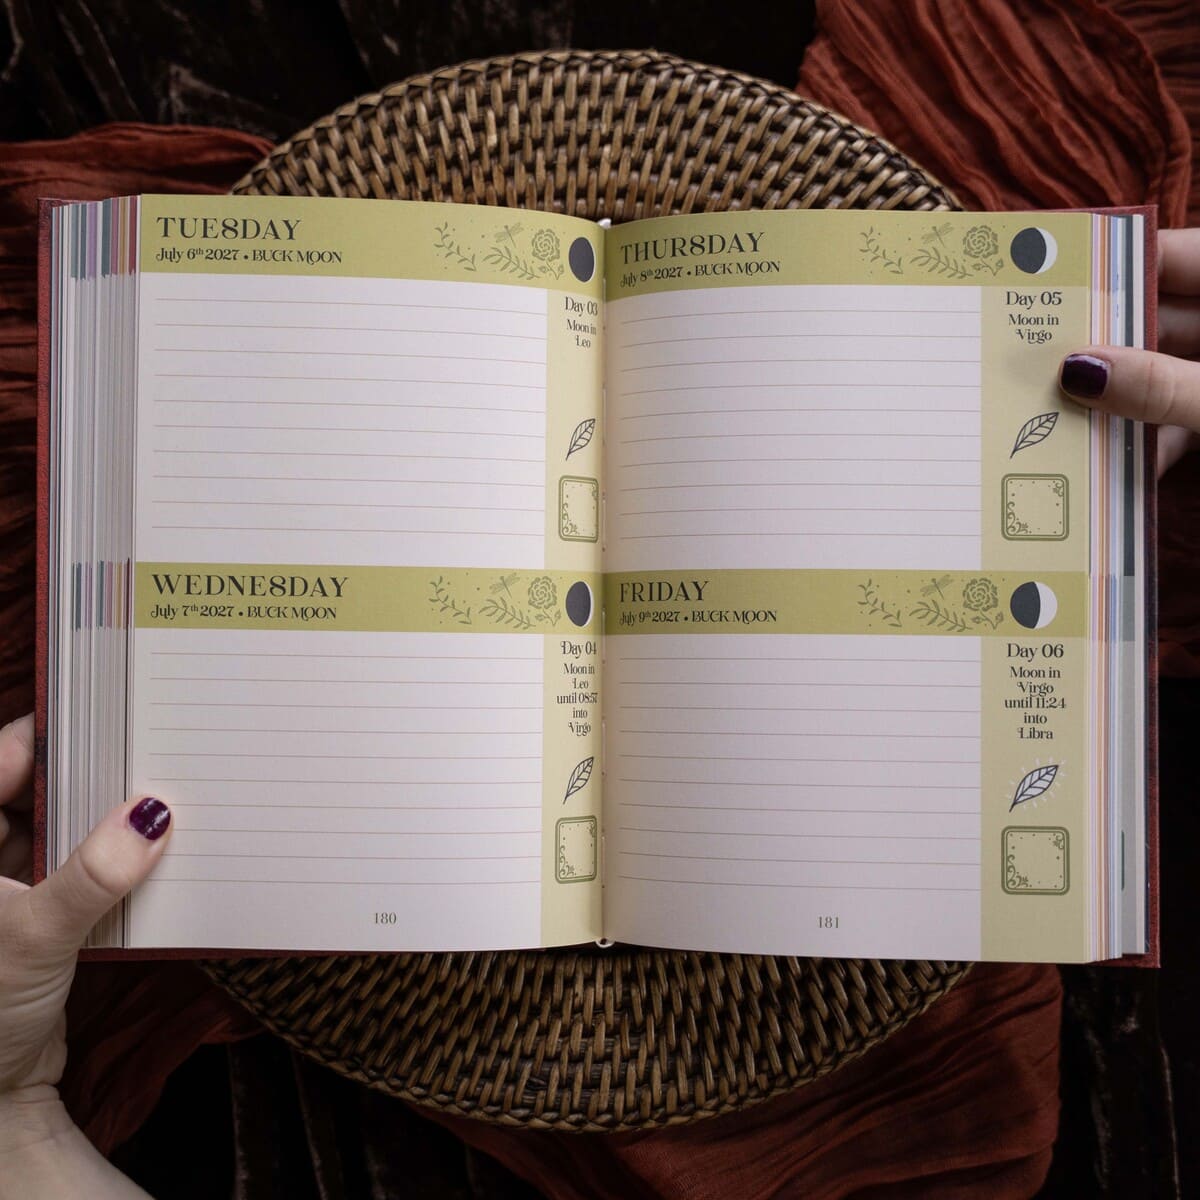 TUESDAY
July 6th 2027 • BUCK MOON
Day 03
Moon in
Leo
WEDNESDAY
July 7th 2027 • BUCK MOON
Day 04
Moon in
Leo
until 08:57
into
Virgo
180
THURSDAY
July 8th 2027 • BUCK MOON
Day 05
Moon in
Virgo
FRIDAY
July 9th 2027 • BUCK MOON
Day 06
Moon in
Virgo
until 11:24
into
Libra
181